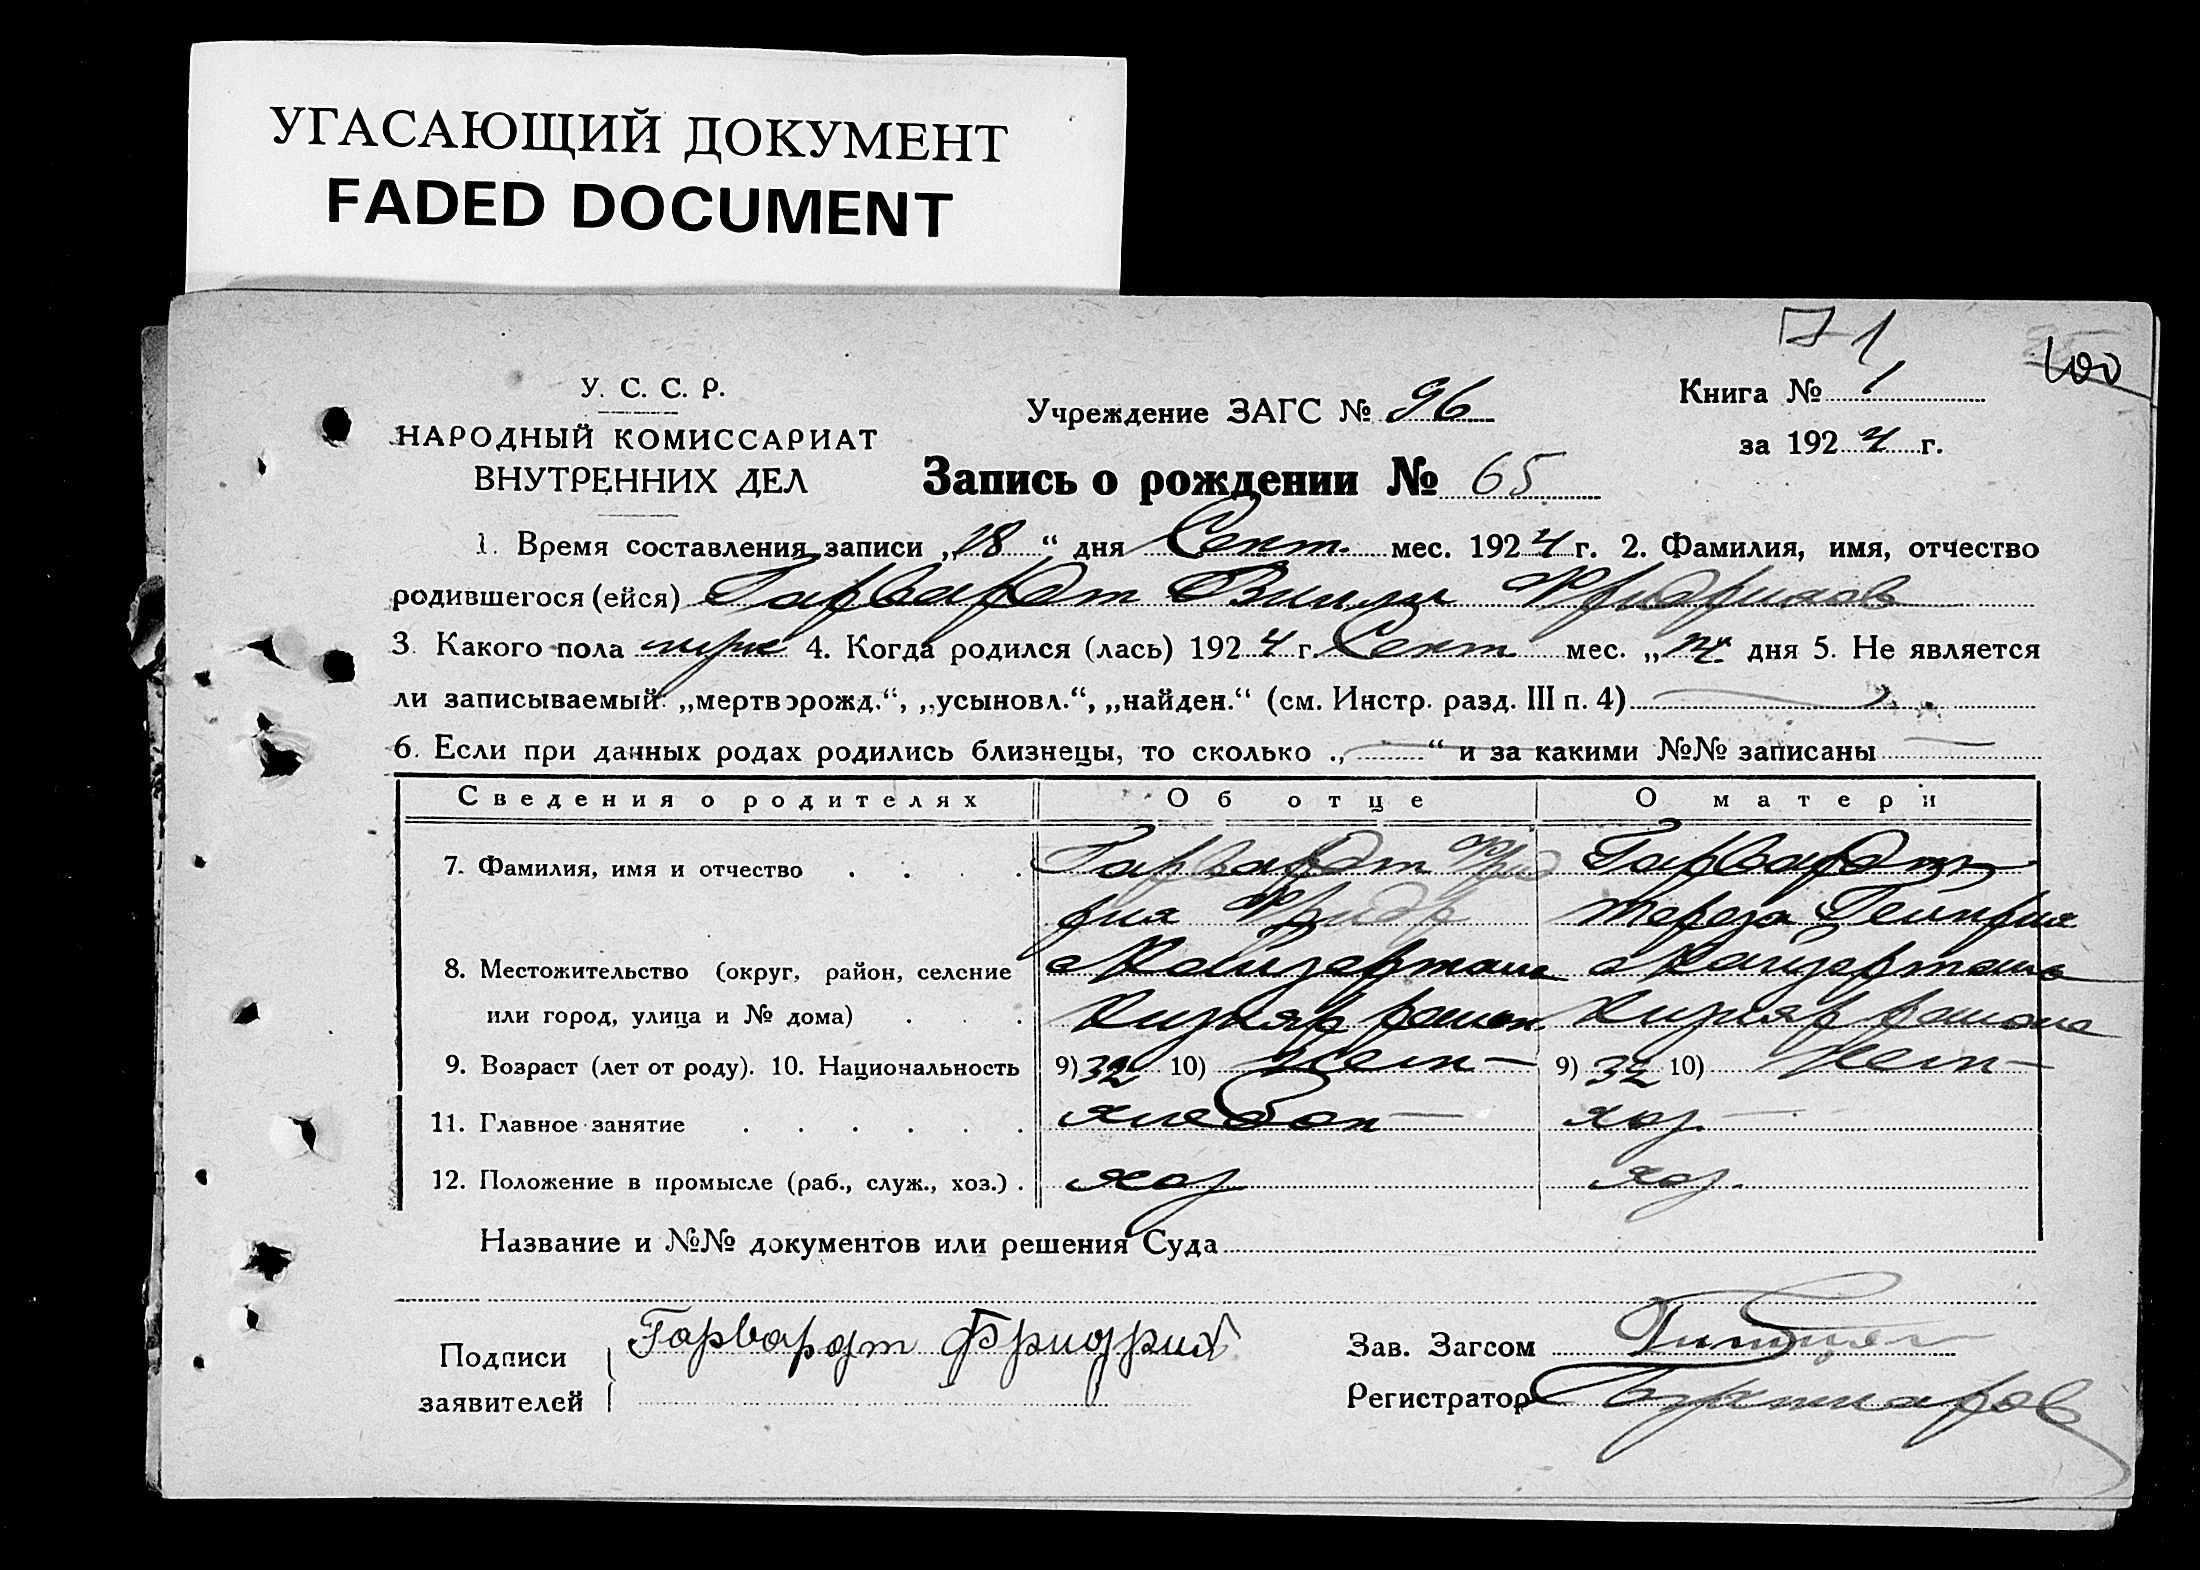 УГАСАЮЩИЙ ДОКУМЕНТ
FADED DOCUMENT
71
100
У. С. С. Р.
НАРОДНЫЙ КОМИССАРИАТ
ВНУТРЕННИХ ДЕЛ
Учреждение ЗАГС № 96
Книга № 1
за 1924 г.
Запись о рождении № 65
1. Время составления записи „18“ дня Сент. мес. 1924 г. 2. Фамилия, имя, отчество
родившегося (ейся) Гарвардт Вилли Фридрихов
3. Какого пола муж 4. Когда родился (лась) 1924 г. Сент мес. „ дня 5. Не является
ли записываемый: „мертворожд.“, „усыновл.“, „найден.“ (см. Инстр. разд. III п. 4)
6. Если при данных родах родились близнецы, то сколько „ — “ и за какими №№ записаны —
Сведения о родителях Об отце О матери
7. Фамилия, имя и отчество . . . . Гарвардт Фрид Гарвардт
рих Фридр Тереза Генрих
8. Местожительство (округ, район, селение
или город, улица и № дома) . . .
9. Возраст (лет от роду). 10. Национальность 9) 32 10) Нем — 9) 32 10) Нем —
11. Главное занятие . . . . . . хлебоп — хоз. —
12. Положение в промысле (раб., служ., хоз.) . хоз хоз.
Название и №№ документов или решения Суда
Подписи
заявителей
Гарвардт Фридрих
Зав. Загсом
Регистратор